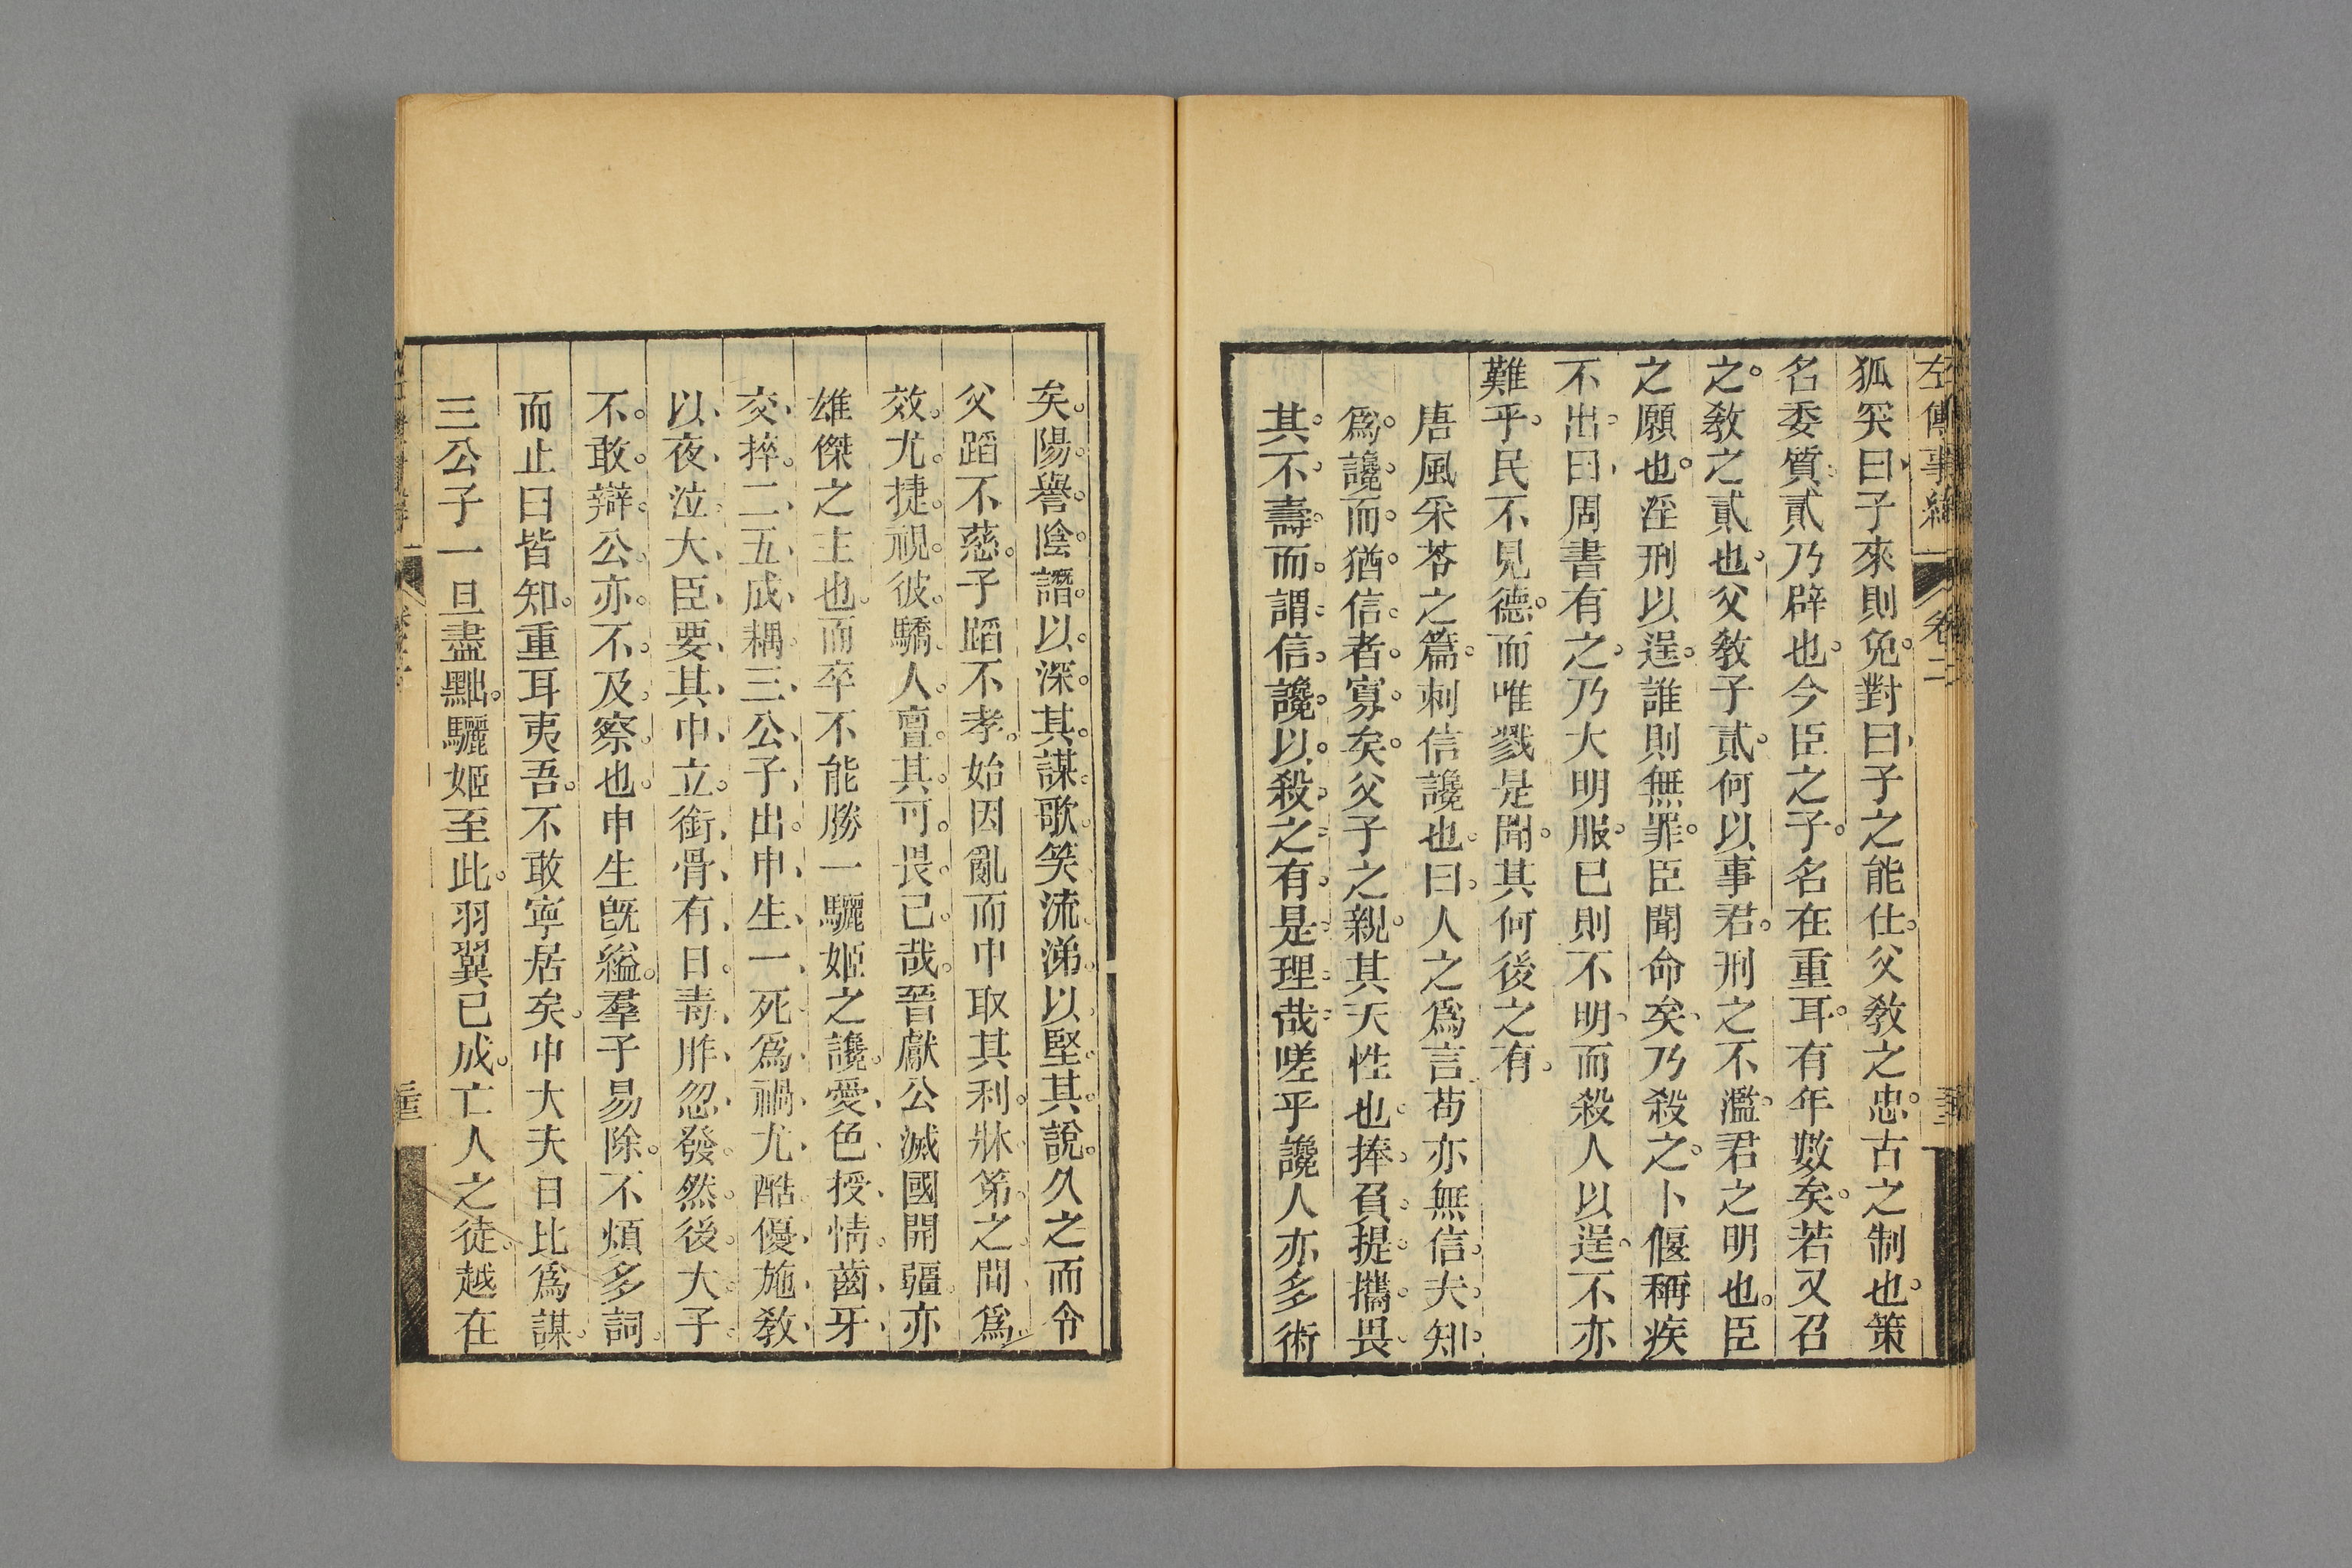 左傳事緯 卷二
狐突曰子來則免對曰子之能仕父教之忠古之制也策
名委質貳乃辟也今臣之子名在重耳有年數矣若又召
之教之貳也父教子貳何以事君刑之不濫君之明也臣
之願也淫刑以逞誰則無罪臣聞命矣乃殺之卜偃稱疾
不出曰周書有之乃大明服已則不明而殺人以逞不亦
難乎民不見德而唯戮是聞其何後之有
唐風采苓之篇刺信讒也曰人之爲言苟亦無信夫知
爲讒而猶信者寡矣父子之親其天性也捧負提攜畏
其不壽而謂信讒以殺之有是理哉嗟乎讒人亦多術
矣陽譽陰譖以深其謀歌笑流涕以堅其說久之而令
父蹈不慈子蹈不孝始因亂而中取其利牀笫之間爲
效尤捷視彼驕人亶其可畏已哉晉獻公滅國開疆亦
雄傑之主也而卒不能勝一驪姬之讒愛色授情齒牙
交捽二五成耦三公子出申生一死爲禍尤酷優施教
以夜泣大臣要其中立銜骨有日毒胙忽發然後大子
不敢辯公亦不及察也申生旣縊羣子易除不煩多詞
而止曰皆知重耳夷吾不敢寧居矣中大夫日比爲謀
三公子一旦盡黜驪姬至此羽翼已成亡人之徒越在